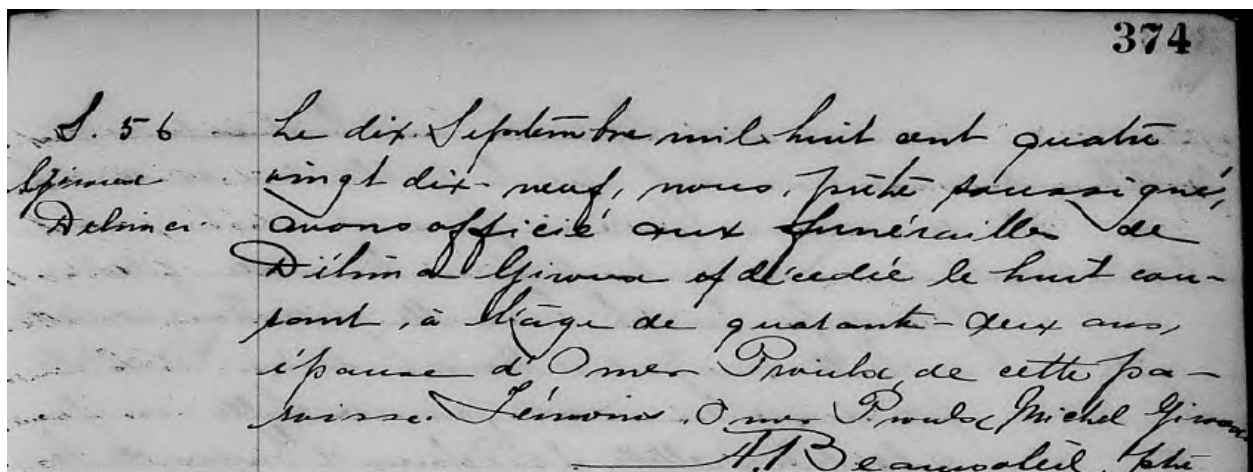 374
S. 56
Giroux
Delima
Le dix Septembre mil huit cent quatre
vingt dix-neuf, nous, prêtre soussigné,
avons officié aux funérailles de
Délima Giroux décédée le huit cou-
rant, à l'âge de quarante-deux ans,
épouse d'Omer Proulx de cette pa-
roisse. Témoins. Omer Proulx, Michel Giroux
A. Beausoleil ptre